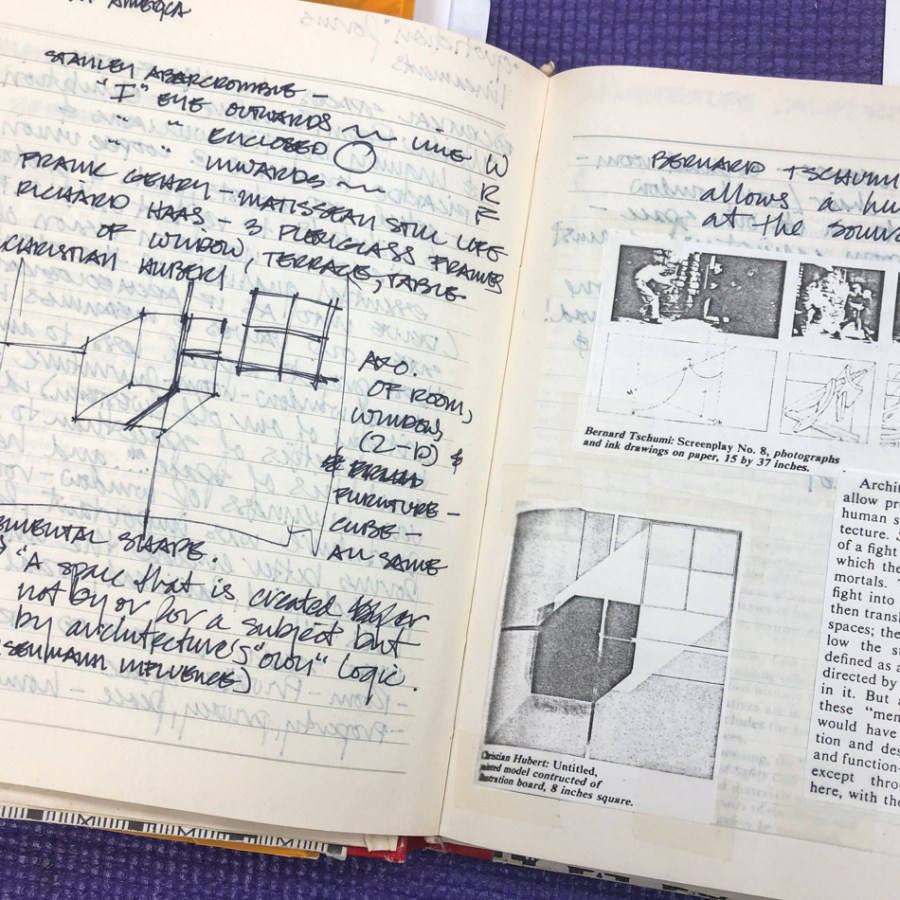 AMERICA
STANLEY ABERCROMBIE –
"I" EYE OUTWARDS ~~ LINE W
" " ENCLOSED ◯ R
" " INWARDS ~~ F
FRANK GEHRY – MATISSEAN STILL LIFE
RICHARD HAAS – 3 PLEXIGLASS FRAMES
OF WINDOW, TERRACE, TABLE
CHRISTIAN HUBERT
AXO
OF ROOM,
WINDOW,
(2-D) &
FURNITURE –
CUBE –
ALL SAME
SHAPE.
"A space that is created
not by or for a subject but
by architecture's "own" logic.
INFLUENCE)
BERNARD TSCHUMI
allows a hu
at the sour
Bernard Tschumi: Screenplay No. 8, photographs
and ink drawings on paper, 15 by 37 inches.
Christian Hubert: Untitled,
painted model contructed of
illustration board, 8 inches square.
Archit
allow pr
human s
tecture. S
of a fight
which the
mortals. T
fight into
then transl
spaces; the
low the s
defined as a
directed by
in it. But a
these "men
would have
tion and des
and function-
except thro
here, with the